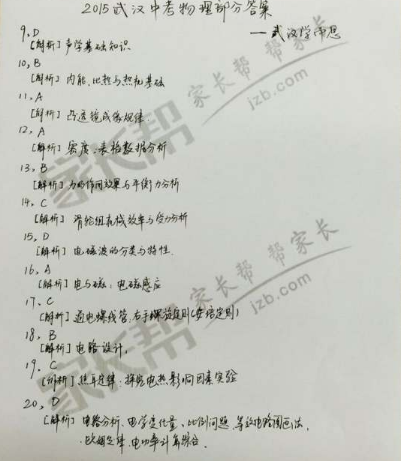 2015武汉中考物理部分答案
——武汉学而思
9、D
[解析] 声学基础知识
10、B
[解析] 内能、比热与热机基础
11、A
[解析] 凸透镜成像规律
12、A
[解析] 密度、表格数据分析
13、B
[解析] 力的作用效果与平衡力分析
14、C
[解析] 滑轮组机械效率与受力分析
15、D
[解析] 电磁波的分类与特性.
16、A
[解析] 电与磁:电磁感应
17、C
[解析] 通电螺线管,右手螺旋定则(安培定则)
18、B
[解析] 电路设计,
19、C
[解析] 焦耳定律、探究电热影响因素实验
20、D
[解析] 电路分析、电学变化量、比例问题、等效电路图画法,
欧姆定律、电功率计算综合.
家长帮
jzb.com
家长帮 帮家长
jzb.com
家长帮
家长帮 帮家长
jzb.com